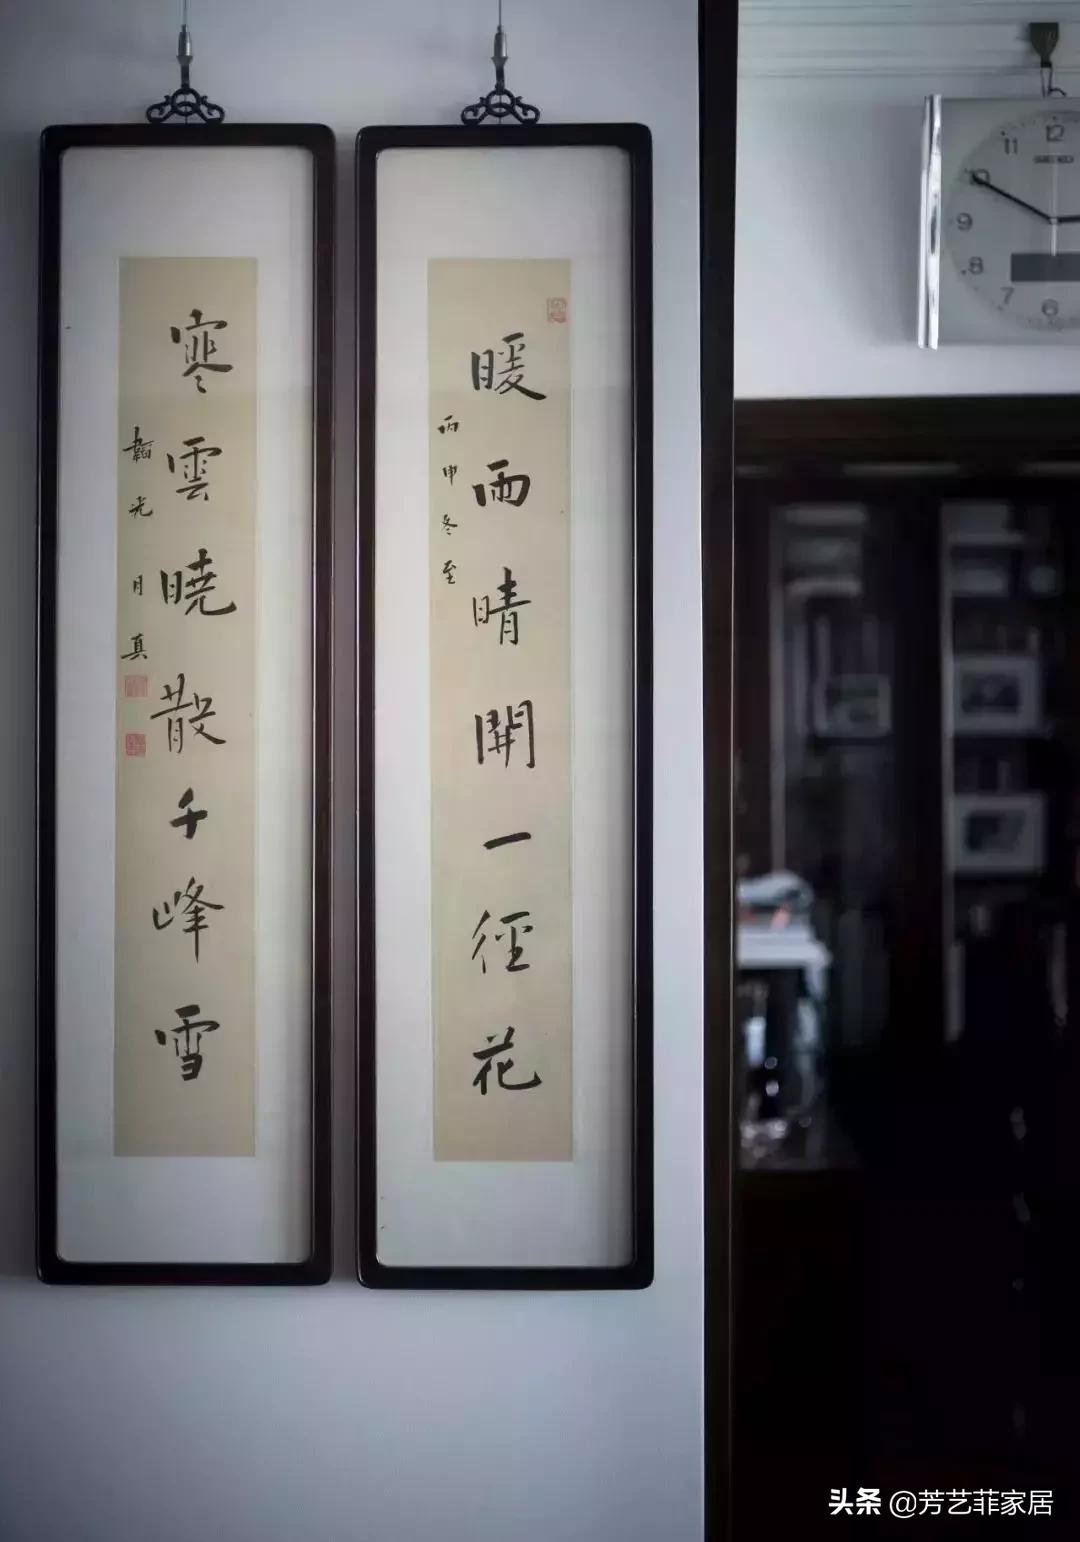 暖雨晴開一徑花
丙申冬至
寒雲曉散千峰雪
韜光 月真
12
11
10
9
8
7
6
SEIKO
头条 @芳艺菲家居